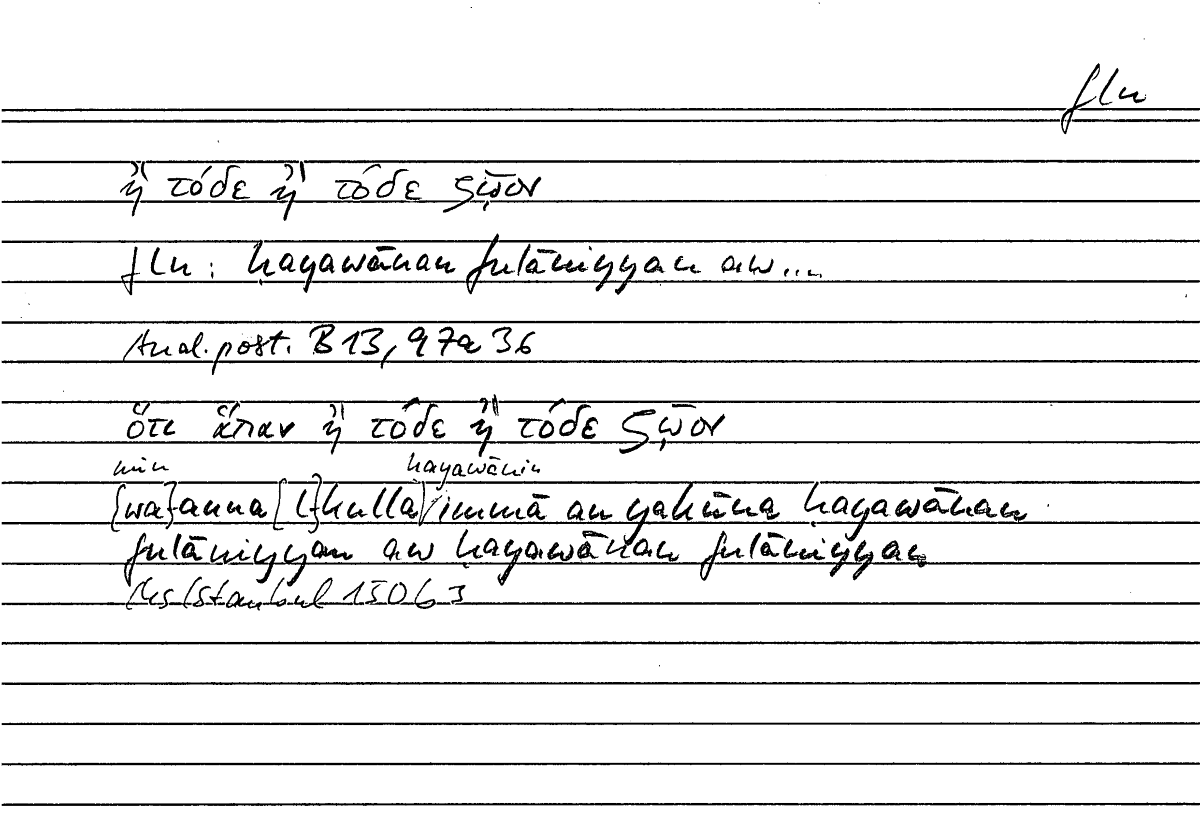 fln
ἢ τόδε ἢ τόδε ζῷον
fln: ḥayawānan fulāniyyan aw...
Anal. post. B 13, 97a 36
ὅτι ἅπαν ἢ τόδε ἢ τόδε ζῷον
min ḥayawānin
{wa}anna [l}kulla/immā an yakūna ḥayawānan
fulāniyyan aw ḥayawānan fulāniyyan
Ms Istanbul 150b3